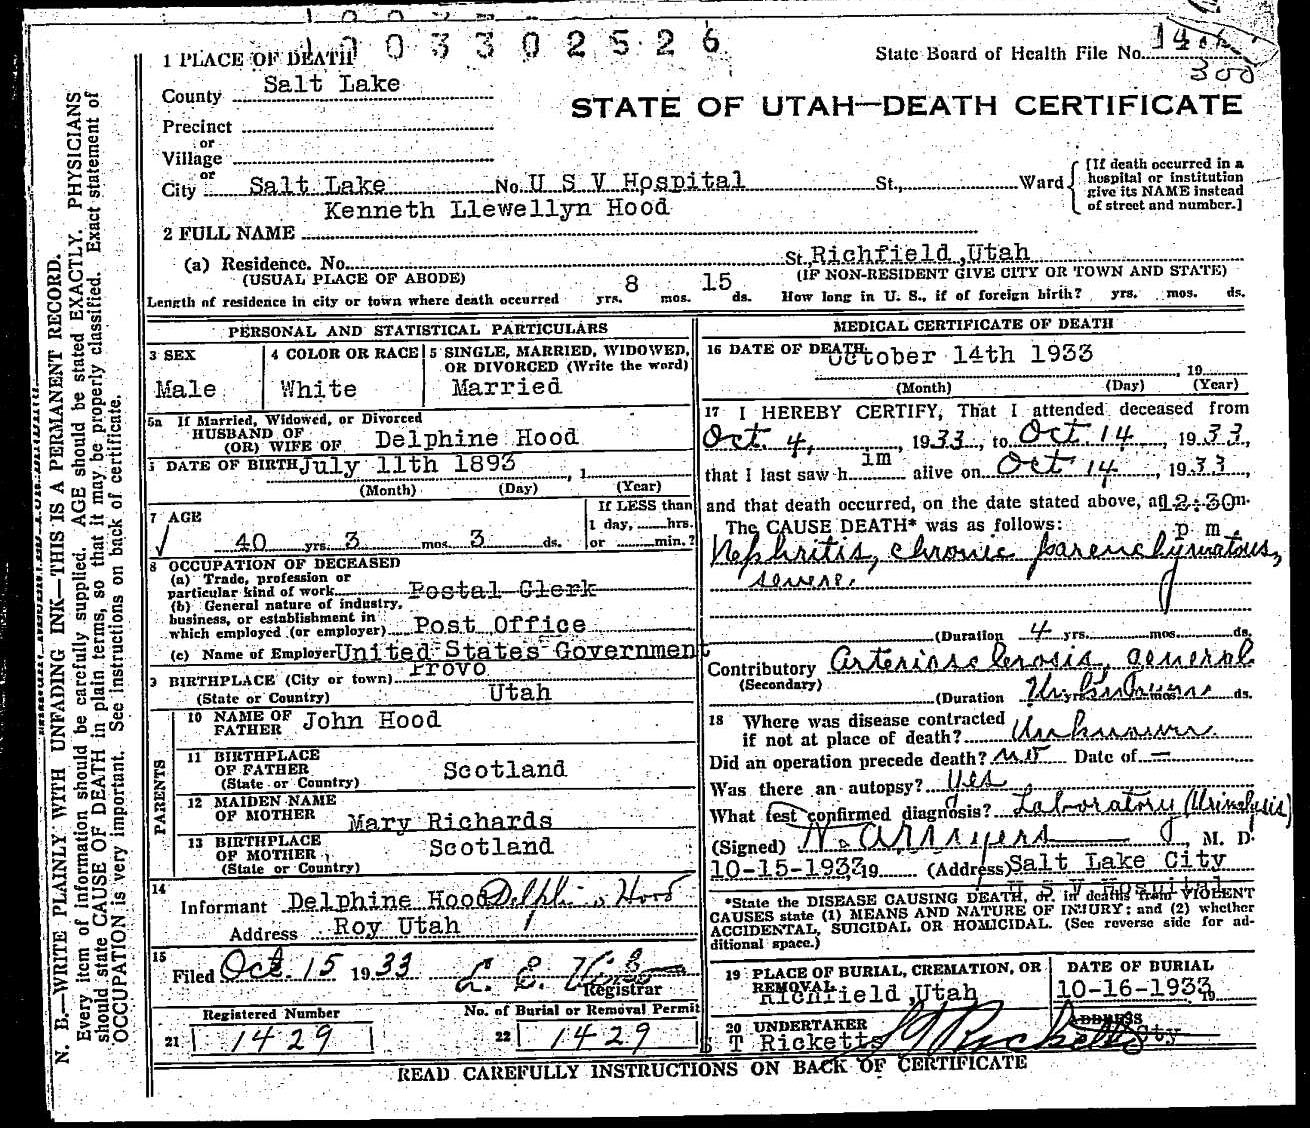 1003302526
State Board of Health File No.
1 PLACE OF DEATH
County Salt Lake
STATE OF UTAH—DEATH CERTIFICATE
Precinct
or
Village
or
City Salt Lake No. U S V Hospital St., Ward
[If death occurred in a hospital or institution give its NAME instead of street and number.]
Kenneth Llewellyn Hood
2 FULL NAME
(a) Residence. No. St. Richfield, Utah
(USUAL PLACE OF ABODE) (IF NON-RESIDENT GIVE CITY OR TOWN AND STATE)
Length of residence in city or town where death occurred yrs. 8 mos. 15 ds. How long in U. S., if of foreign birth? yrs. mos. ds.
PERSONAL AND STATISTICAL PARTICULARS
3 SEX
Male
4 COLOR OR RACE
White
5 SINGLE, MARRIED, WIDOWED,
OR DIVORCED (Write the word)
Married
5a If Married, Widowed, or Divorced
HUSBAND OF
(OR) WIFE OF Delphine Hood
DATE OF BIRTH July 11th 1893, 1
(Month) (Day) (Year)
7 AGE
40 yrs. 3 mos. 3 ds.
If LESS than
1 day, hrs.
or min.?
8 OCCUPATION OF DECEASED
(a) Trade, profession or
particular kind of work Postal Clerk
(b) General nature of industry,
business, or establishment in
which employed (or employer) Post Office
(c) Name of Employer United States Government
9 BIRTHPLACE (City or town) Provo
(State or Country) Utah
PARENTS
10 NAME OF
FATHER John Hood
11 BIRTHPLACE
OF FATHER
(State or Country) Scotland
12 MAIDEN NAME
OF MOTHER Mary Richards
13 BIRTHPLACE
OF MOTHER
(State or Country) Scotland
14
Informant Delphine Hood Delphine Hood
Address Roy Utah
15
Filed Oct. 15 1933
Registrar
Registered Number
21 1429
No. of Burial or Removal Permit
22 1429
MEDICAL CERTIFICATE OF DEATH
16 DATE OF DEATH October 14th 1933, 19
(Month) (Day) (Year)
17 I HEREBY CERTIFY, That I attended deceased from
Oct. 4, 1933, to Oct. 14, 1933,
that I last saw him alive on Oct 14, 1933,
and that death occurred, on the date stated above, at 12:30 m.
The CAUSE DEATH* was as follows: p m
Nephritis, chronic parenchymatous,
severe.
(Duration 4 yrs. mos. ds.
Contributory Arteriosclerosis, general
(Secondary)
(Duration Unknown yrs. mos. ds.
18 Where was disease contracted
if not at place of death? Unknown
Did an operation precede death? no Date of —
Was there an autopsy? Yes
What test confirmed diagnosis? Laboratory (Urinalysis)
(Signed) M. D.
10-15-1933, 19 (Address) Salt Lake City
U S V Hospital
*State the DISEASE CAUSING DEATH, or in deaths from VIOLENT
CAUSES state (1) MEANS AND NATURE OF INJURY; and (2) whether
ACCIDENTAL, SUICIDAL OR HOMICIDAL. (See reverse side for ad-
ditional space.)
19 PLACE OF BURIAL, CREMATION, OR
REMOVAL
Richfield, Utah
DATE OF BURIAL
10-16-1933 19
20 UNDERTAKER
S T Ricketts
ADDRESS
READ CAREFULLY INSTRUCTIONS ON BACK OF CERTIFICATE
N. B.—WRITE PLAINLY WITH UNFADING INK—THIS IS A PERMANENT RECORD.
Every item of information should be carefully supplied. AGE should be stated EXACTLY. PHYSICIANS
should state CAUSE OF DEATH in plain terms, so that it may be properly classified. Exact statement of
OCCUPATION is very important. See instructions on back of certificate.